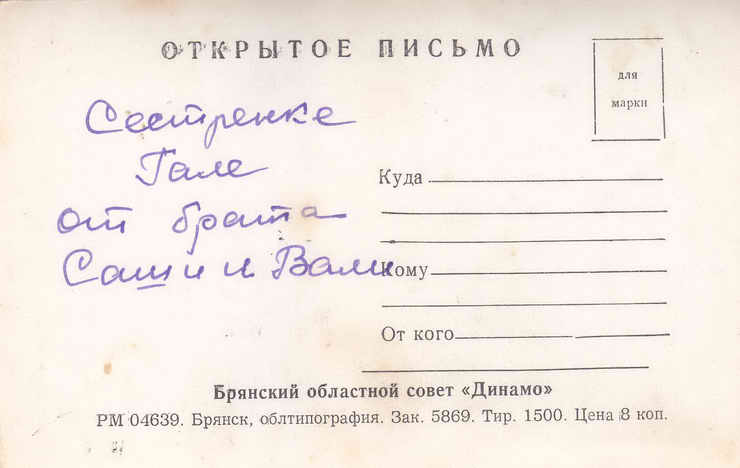 ОТКРЫТОЕ ПИСЬМО
для
марки
Сестренке
Гале
от брата
Саши и Вали
Куда
Кому
От кого
Брянский областной совет «Динамо»
РМ 04639. Брянск, облтипография. Зак. 5869. Тир. 1500. Цена 8 коп.